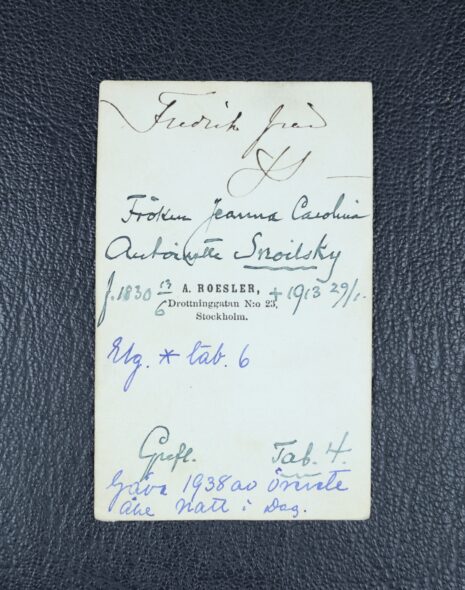 Fredrik
Fröken Jeanna Carolina
Antoinette Snoilsky
f. 1830 13/6 + 1913 29/1.
A. ROESLER,
Drottninggatan N:o 23,
Stockholm.
Elg. * tab. 6
Grefl. Tab. 4.
Gåva 1938 av överste
Åke Natt i Dag.